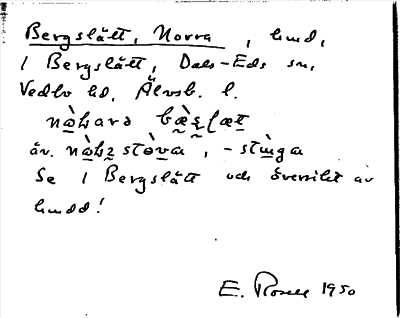 Bergslätt, Norra, hmd,
1 Bergslätt, Dals-Eds sn,
Vedbo hd, Älvsb. l.
nò̱ḫarə bæ̀ʂḷæt
äv. nò̱ḫʐ stò̱va, -stuga
Se 1 Bergslätt och översikt av
hmdd!
E. Rosell 1950